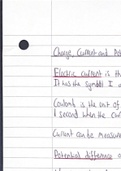 Charge, Current and Pot
Electric current is th
It has the symbol I a
Coulomb is the unit of
1 second when the curr
Current can be measure
Potential difference o